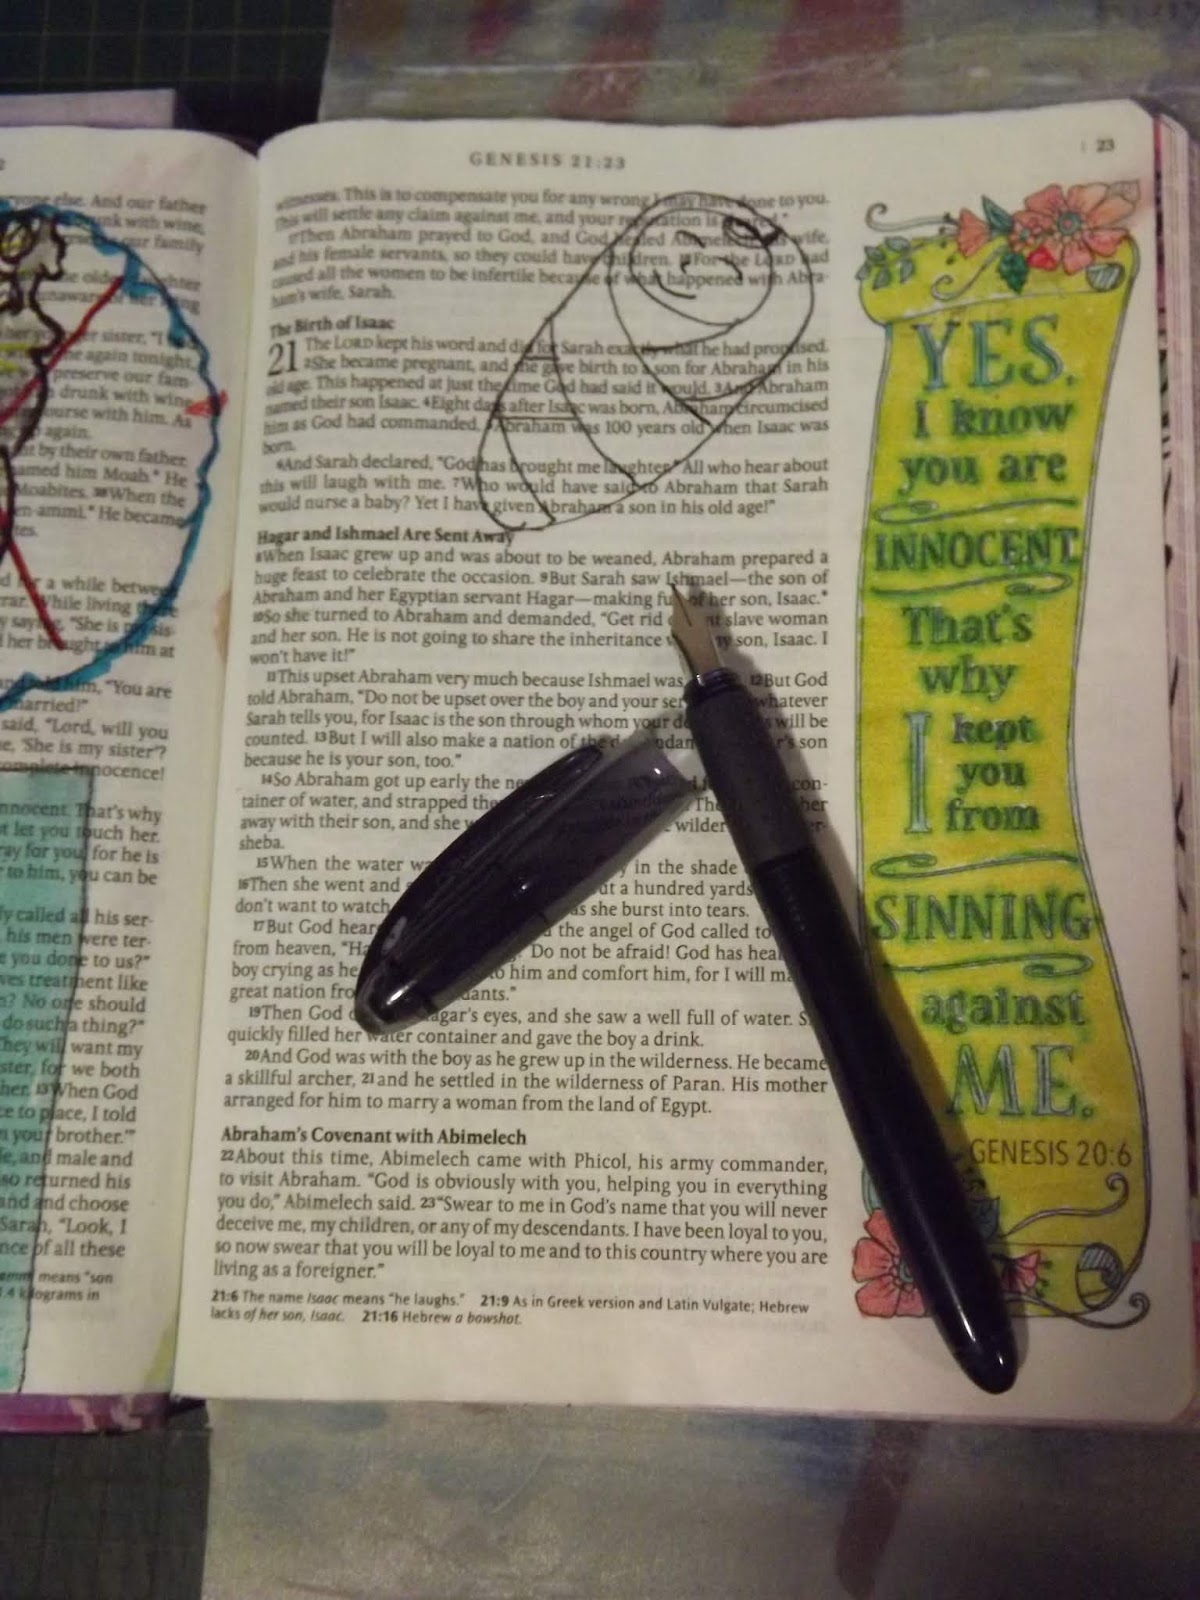 yone else. And our father
nk with wine,
our family
he olde ghter
unaware of her
her sister, "I
he again tonight,
preserve our fam-
drunk with wine
ourse with him. As
up again.
t by their own father.
named him Moab.* He
Moabites. 38When the
en-ammi.* He became
tes.
for a while between
rar. While living
y saying, "She is
her brought to him at
him, "You are
married!"
said, "Lord, will you
e, 'She is my sister'?
complete innocence!
nnocent. That's why
t let you touch her.
ray for you, for he is
to him, you can be
ly called all his ser-
his men were ter-
e you done to us?"
ves treatment like
n? No one should
do such a thing?"
They will want my
ster, for we both
her. 13When God
ce to place, I told
your brother.'"
le, and male and
so returned his
and and choose
Sarah, "Look, I
nce of all these
means "son
kilograms in
GENESIS 21:23
23
witnesses. This is to compensate you for any wrong I may have done to you.
This will settle any claim against me, and your reputation is
17Then Abraham prayed to God, and God healed Abimelech his wife,
and his female servants, so they could have children. 18For the LORD had
caused all the women to be infertile because of what happened with Abra-
ham's wife, Sarah.
The Birth of Isaac
21 The LORD kept his word and did for Sarah exactly what he had promised.
2She became pregnant, and she gave birth to a son for Abraham in his
old age. This happened at just the time God had said it would. 3And Abraham
named their son Isaac. 4Eight days after Isaac was born, Abraham circumcised
him as God had commanded. 5Abraham was 100 years old when Isaac was
born.
6And Sarah declared, "God has brought me laughter.* All who hear about
this will laugh with me. 7Who would have said to Abraham that Sarah
would nurse a baby? Yet I have given Abraham a son in his old age!"
Hagar and Ishmael Are Sent Away
8When Isaac grew up and was about to be weaned, Abraham prepared a
huge feast to celebrate the occasion. 9But Sarah saw Ishmael—the son of
Abraham and her Egyptian servant Hagar—making fun of her son, Isaac.*
10So she turned to Abraham and demanded, "Get rid slave woman
and her son. He is not going to share the inheritance son, Isaac. I
won't have it!"
11This upset Abraham very much because Ishmael was 12But God
told Abraham, "Do not be upset over the boy and your whatever
Sarah tells you, for Isaac is the son through whom your will be
counted. 13But I will also make a nation of the son
because he is your son, too."
14So Abraham got up early the con-
tainer of water, and strapped her
away with their son, and she wilder
sheba.
15When the water in the shade
16Then she went and a hundred yards
don't want to watch as she burst into tears.
17But God heard the angel of God called to
from heaven, "Ha Do not be afraid! God has
boy crying as he to him and comfort him, for I will
great nation from
19Then God Hagar's eyes, and she saw a well full of water.
quickly filled her water container and gave the boy a drink.
20And God was with the boy as he grew up in the wilderness. He became
a skillful archer, 21and he settled in the wilderness of Paran. His mother
arranged for him to marry a woman from the land of Egypt.
Abraham's Covenant with Abimelech
22About this time, Abimelech came with Phicol, his army commander,
to visit Abraham. "God is obviously with you, helping you in everything
you do," Abimelech said. 23"Swear to me in God's name that you will never
deceive me, my children, or any of my descendants. I have been loyal to you,
so now swear that you will be loyal to me and to this country where you are
living as a foreigner."
21:6 The name Isaac means "he laughs." 21:9 As in Greek version and Latin Vulgate; Hebrew
lacks of her son, Isaac. 21:16 Hebrew a bowshot.
YES.
I know
you are
INNOCENT
That's
why
I kept
you
from
SINNING
against
ME.
GENESIS 20:6